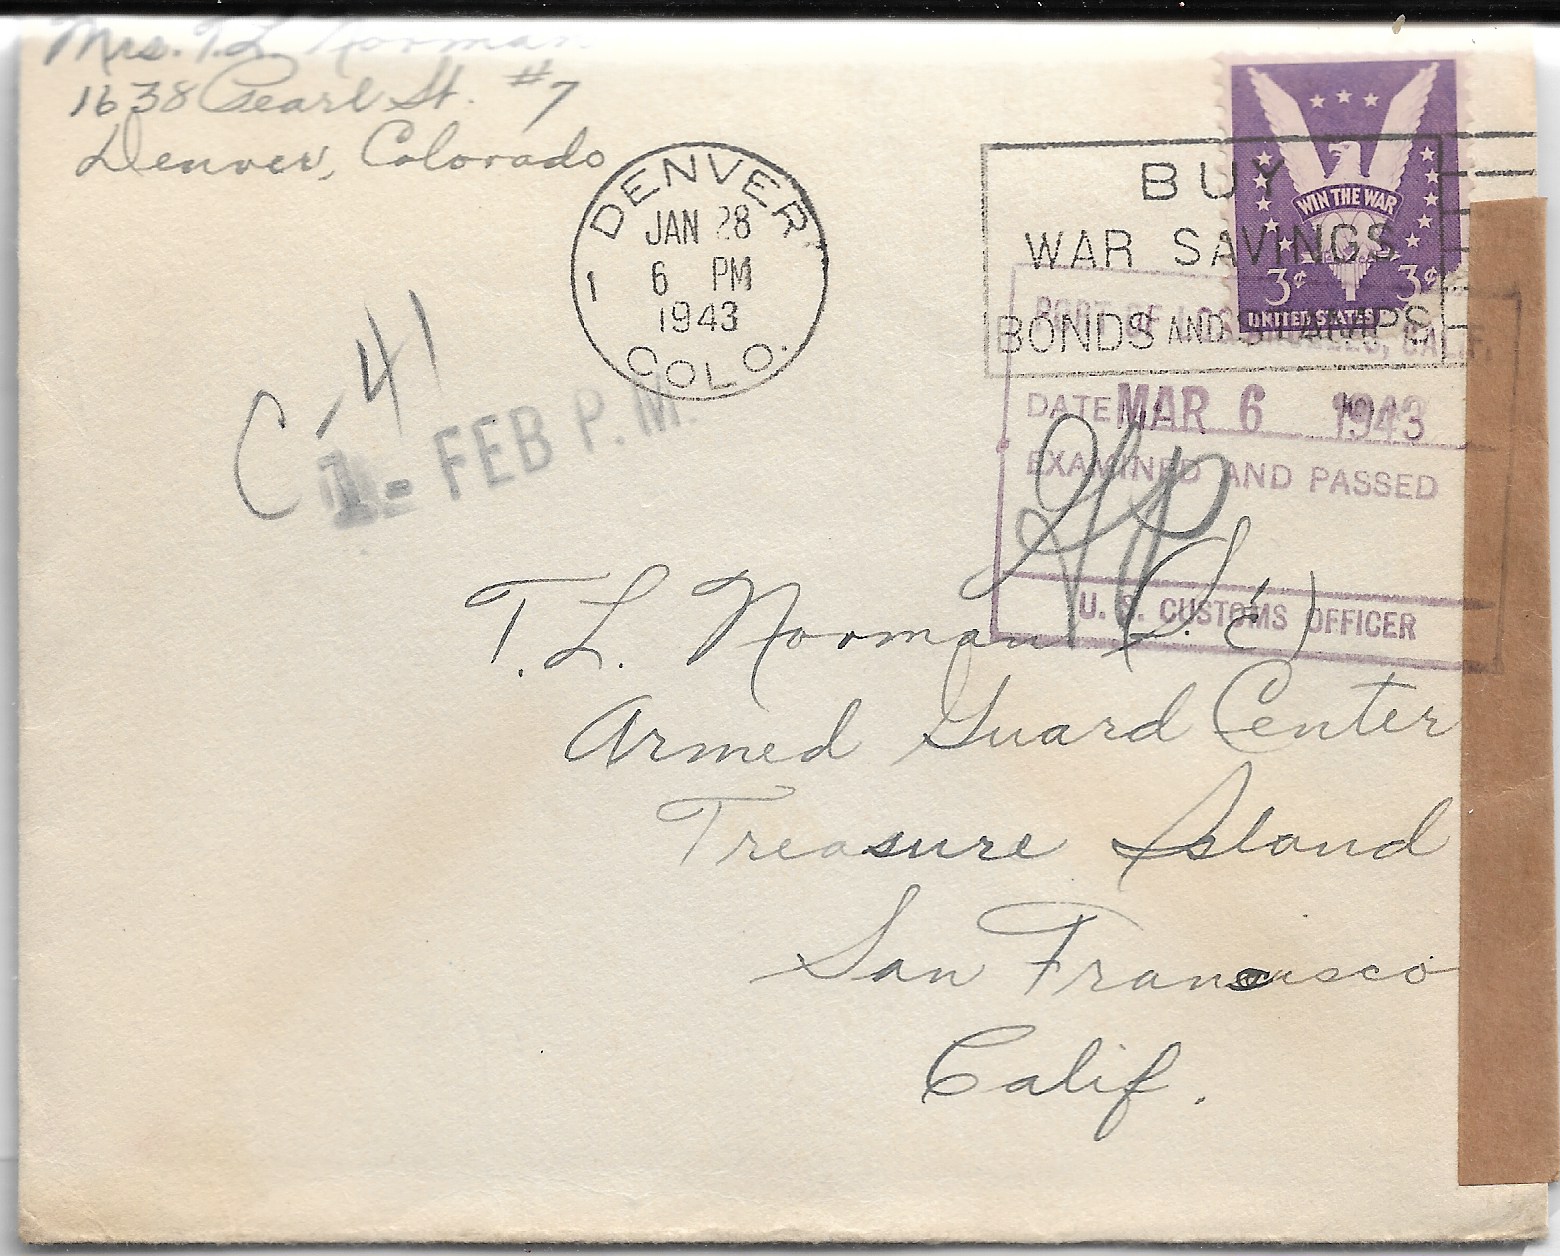 Mrs. T.L. Norman
1638 Pearl St. #7
Denver, Colorado
DENVER
JAN 28
1 6 PM
1943
COLO.
BUY
WAR SAVINGS
BONDS AND STAMPS
WIN THE WAR
3¢ 3¢
UNITED STATES
PORT OF LOS ANGELES, CALIF.
DATE MAR 6 1943
EXAMINED AND PASSED
U. S. CUSTOMS OFFICER
C-41
1 - FEB P.M.
T. L. Norman (S. c)
Armed Guard Center
Treasure Island
San Francisco
Calif.